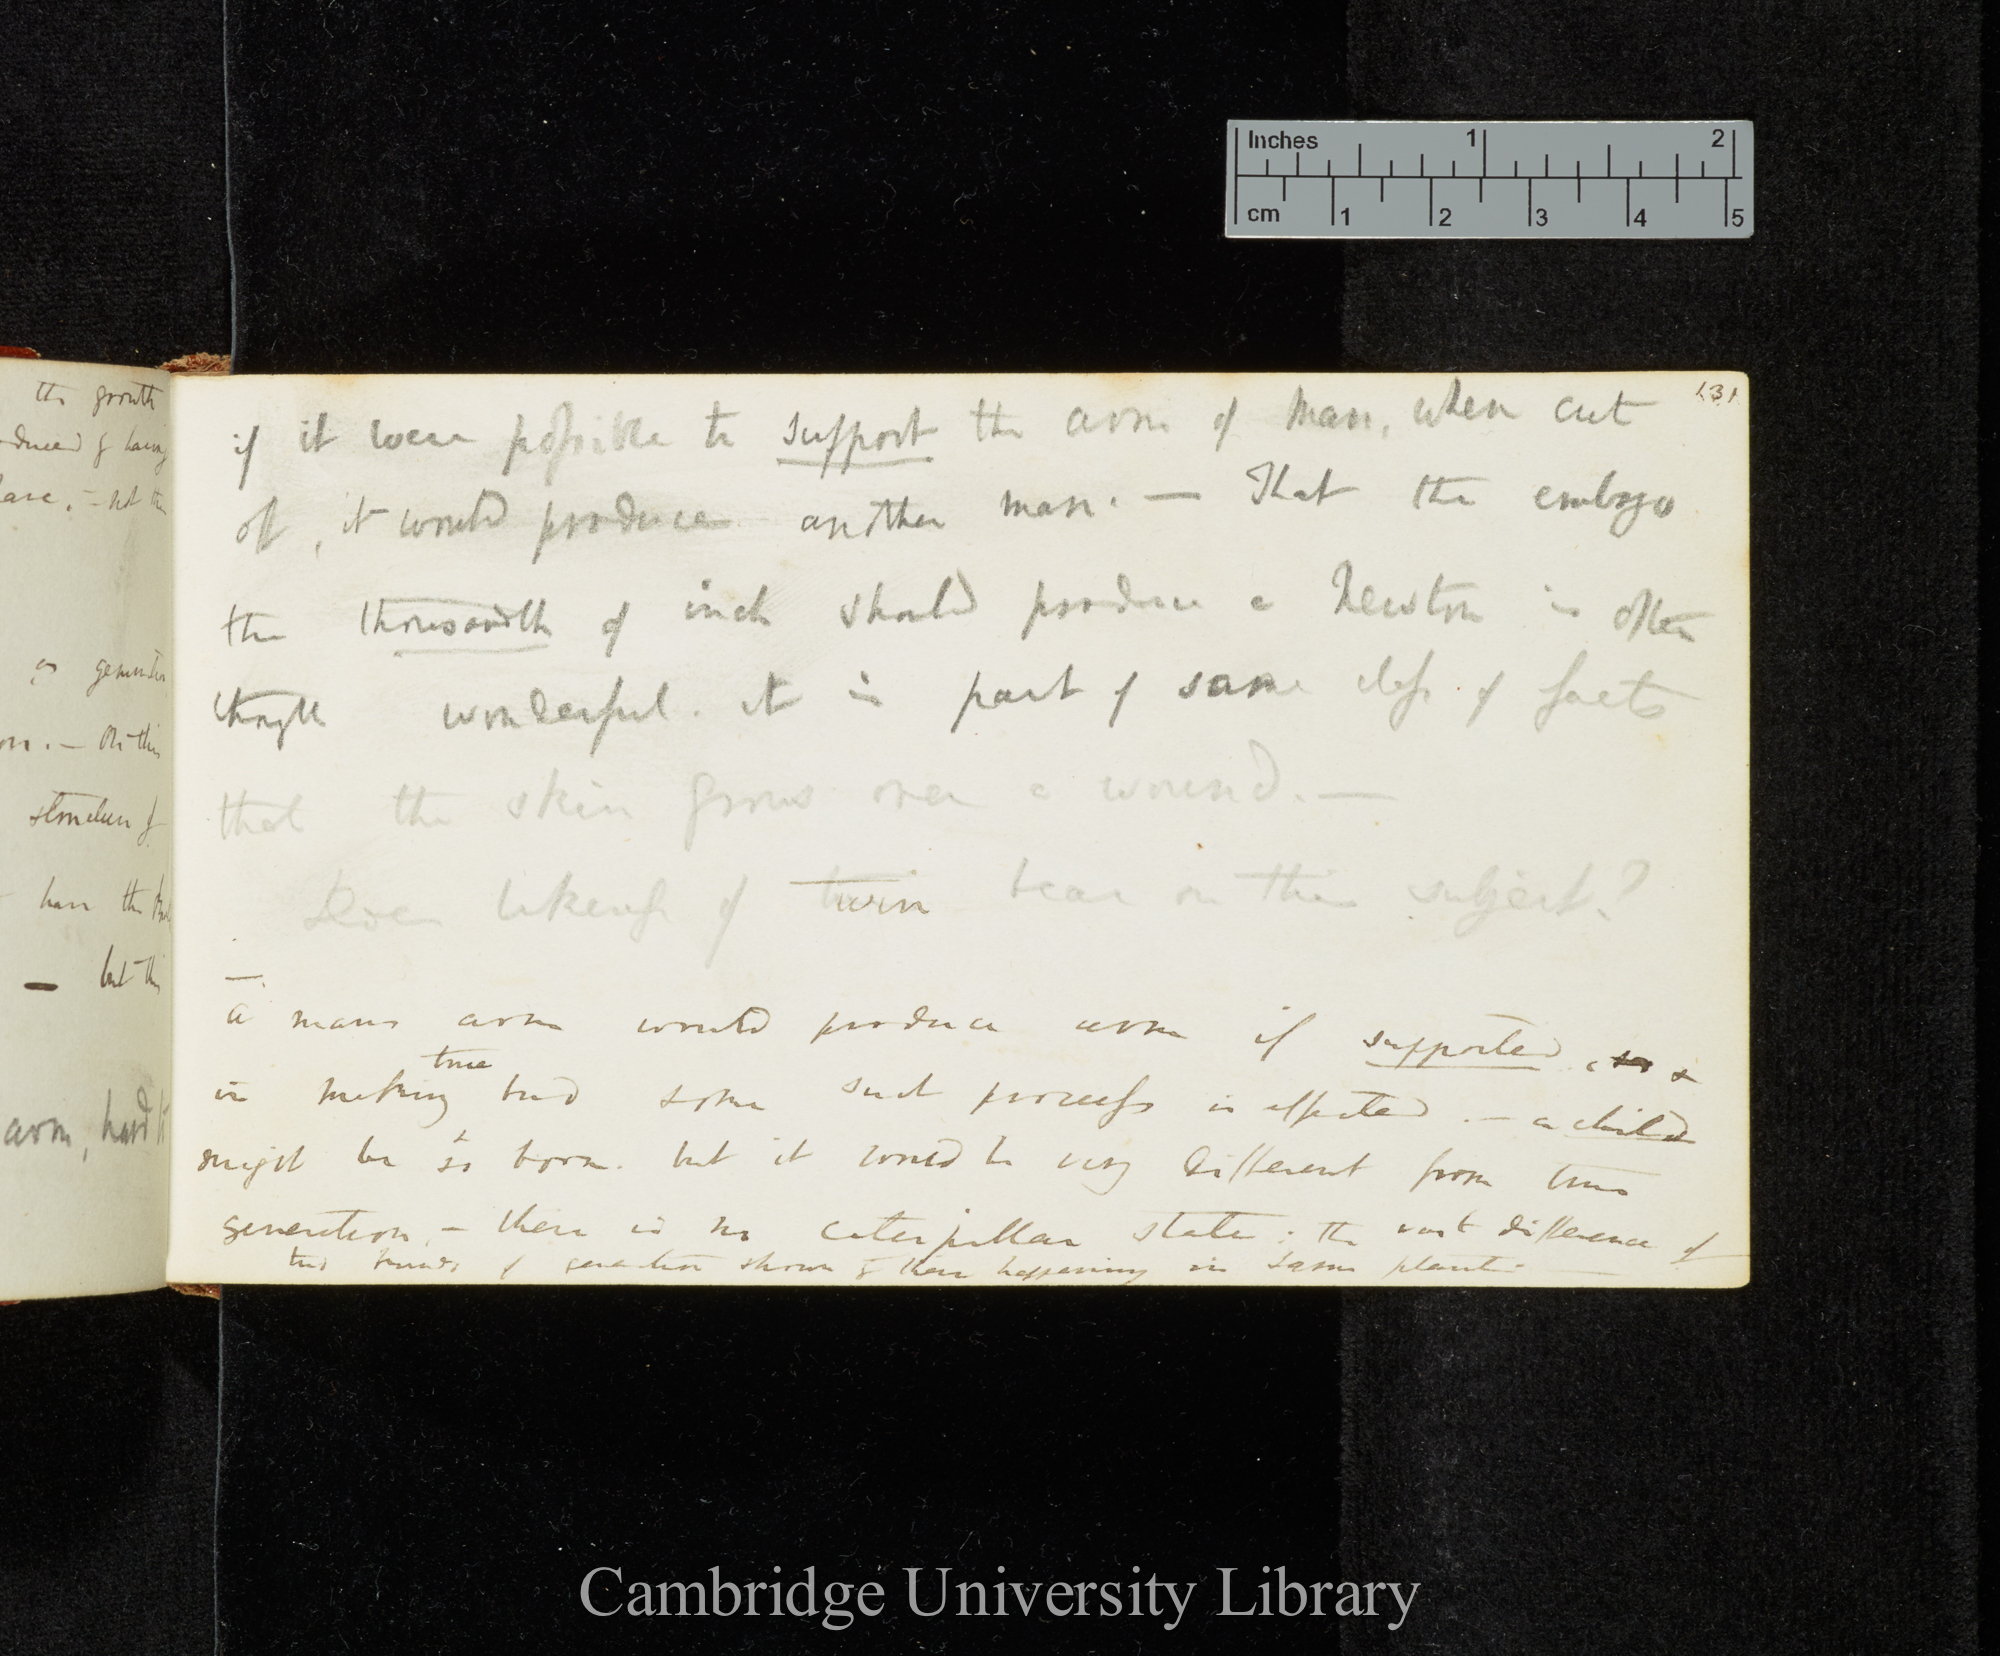 Inches 1 2
cm 1 2 3 4 5
the growth
having
as generation
on this
structure of
have the
— but this
arm, hard to
131
if it were possible to support the arm of man, when cut
off, it would produce another man. — That the embryo
the thousandth of inch should produce a Newton is often
thought wonderful. it is part of same class of facts
that the skin grows over a wound. —
Does likeness of twin bear on this subject?
—
a mans arm would produce arm if supported, so &
in making true bud some such process is effected. — a child
might be so born. but it would be very different from true
generation. — there is no caterpillar state: the vast difference of
two kinds of generation shown by their happening in same plant. —
Cambridge University Library